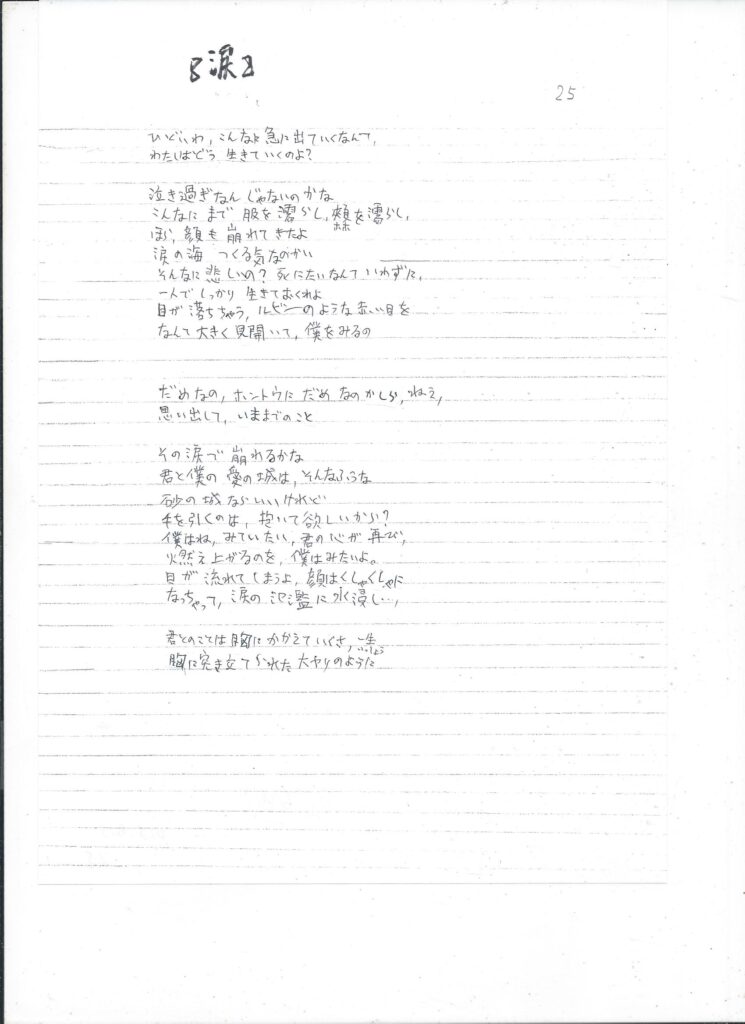 『涙』
25
ひどいわ, こんなに急に出ていくなんて,
わたしはどう 生きていくのよ?
泣き過ぎなんじゃないのかな
こんなにまで 服を濡らし, 頬を濡らし,
ほほ
ほら, 顔も崩れてきたよ
涙の海 つくる気なのかい
そんなに悲しいの? 死にたいなんていわずに,
一人でしっかり生きておくれよ
目が落ちちゃう, ルビーのような赤い目を
なんて大きく見開いて, 僕をみるの
だめなの, ホントウにだめなのかしら, ねえ,
思い出して, いままでのこと
その涙で崩れるかな
君と僕の愛の城は, そんなふうな
砂の城ならいいけれど
手を引くのは, 抱いて欲しいから?
僕はね, みていたい, 君の心が再び,
燃え上がるのを, 僕はみたいよ。
目が流れてしまうよ, 顔はくしゃくしゃに
なっちゃって, 涙の氾濫に水浸し…,
君とのことは胸にかかえていくさ, 一生
いっしょう
胸に突き立てられた大ヤリのように